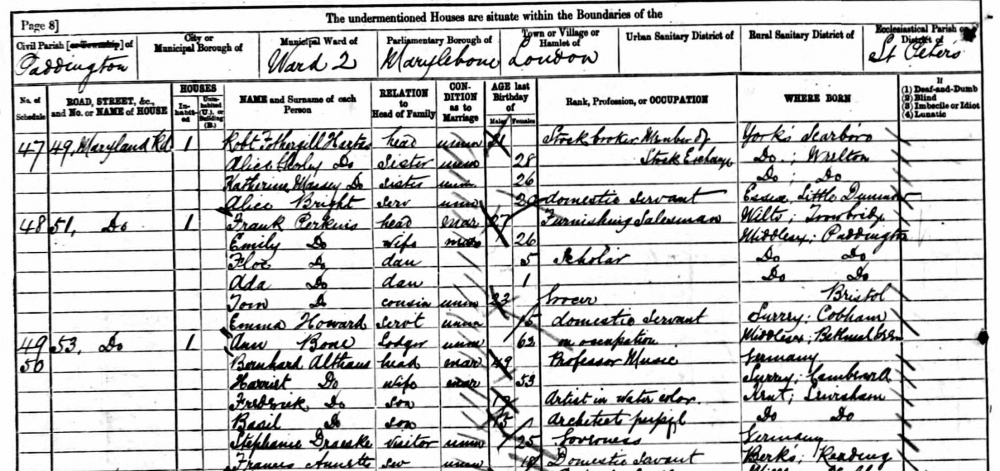 The undermentioned Houses are situate within the Boundaries of the
Page 8]
Civil Parish [or Township] of
City or Municipal Borough of
Municipal Ward of
Parliamentary Borough of
Town or Village or Hamlet of
Urban Sanitary District of
Rural Sanitary District of
Ecclesiastical Parish or District of
Paddington Ward 2 Marylebone London St Peters
No. of Schedule
ROAD, STREET, &c., and No. or NAME of HOUSE
HOUSES
Inhabited
Uninhabited (U.), or Building (B.)
NAME and Surname of each Person
RELATION to Head of Family
CONDITION as to Marriage
AGE last Birthday of
Males Females
Rank, Profession, or OCCUPATION
WHERE BORN
If
(1) Deaf-and-Dumb
(2) Blind
(3) Imbecile or Idiot
(4) Lunatic
47 49, Maryland Rd 1 Robt Fothergill head unm Stockbroker Member of Yorks Scarboro
Alice Do Sister unm 28 Stock Exchange Do ; Wrelton
Katherine Massey Do Sister unm 26 Do ; Do
Alice Bright Serv unm domestic servant Essex, Little
48 51, Do 1 Frank Perkins head mar 27 Furnishing Salesman Wilts, Trowbridge
Emily Do wife mar 26 Middlesex, Paddington
Do dau 5 Scholar Do Do
Ada Do dau 1 Do Do
Tom Do cousin unm 23 Grocer Bristol
Emma Howard Servt unm 15 domestic servant Surrey, Cobham
49 53, Do 1 Ann Bone Lodger unm 62 no occupation Middlesex, Bethnal Grn
50 Bernhard Althaus head mar 49 Professor Music Germany
Harriet Do wife mar 53 Surrey,
Frederick Do son Artist in water color Kent, Lewisham
Basil Do son Architects pupil Do Do
Stephanie Draeske Visitor unm 25 Governess Germany
Frances serv unm Domestic Servant Berks, Reading